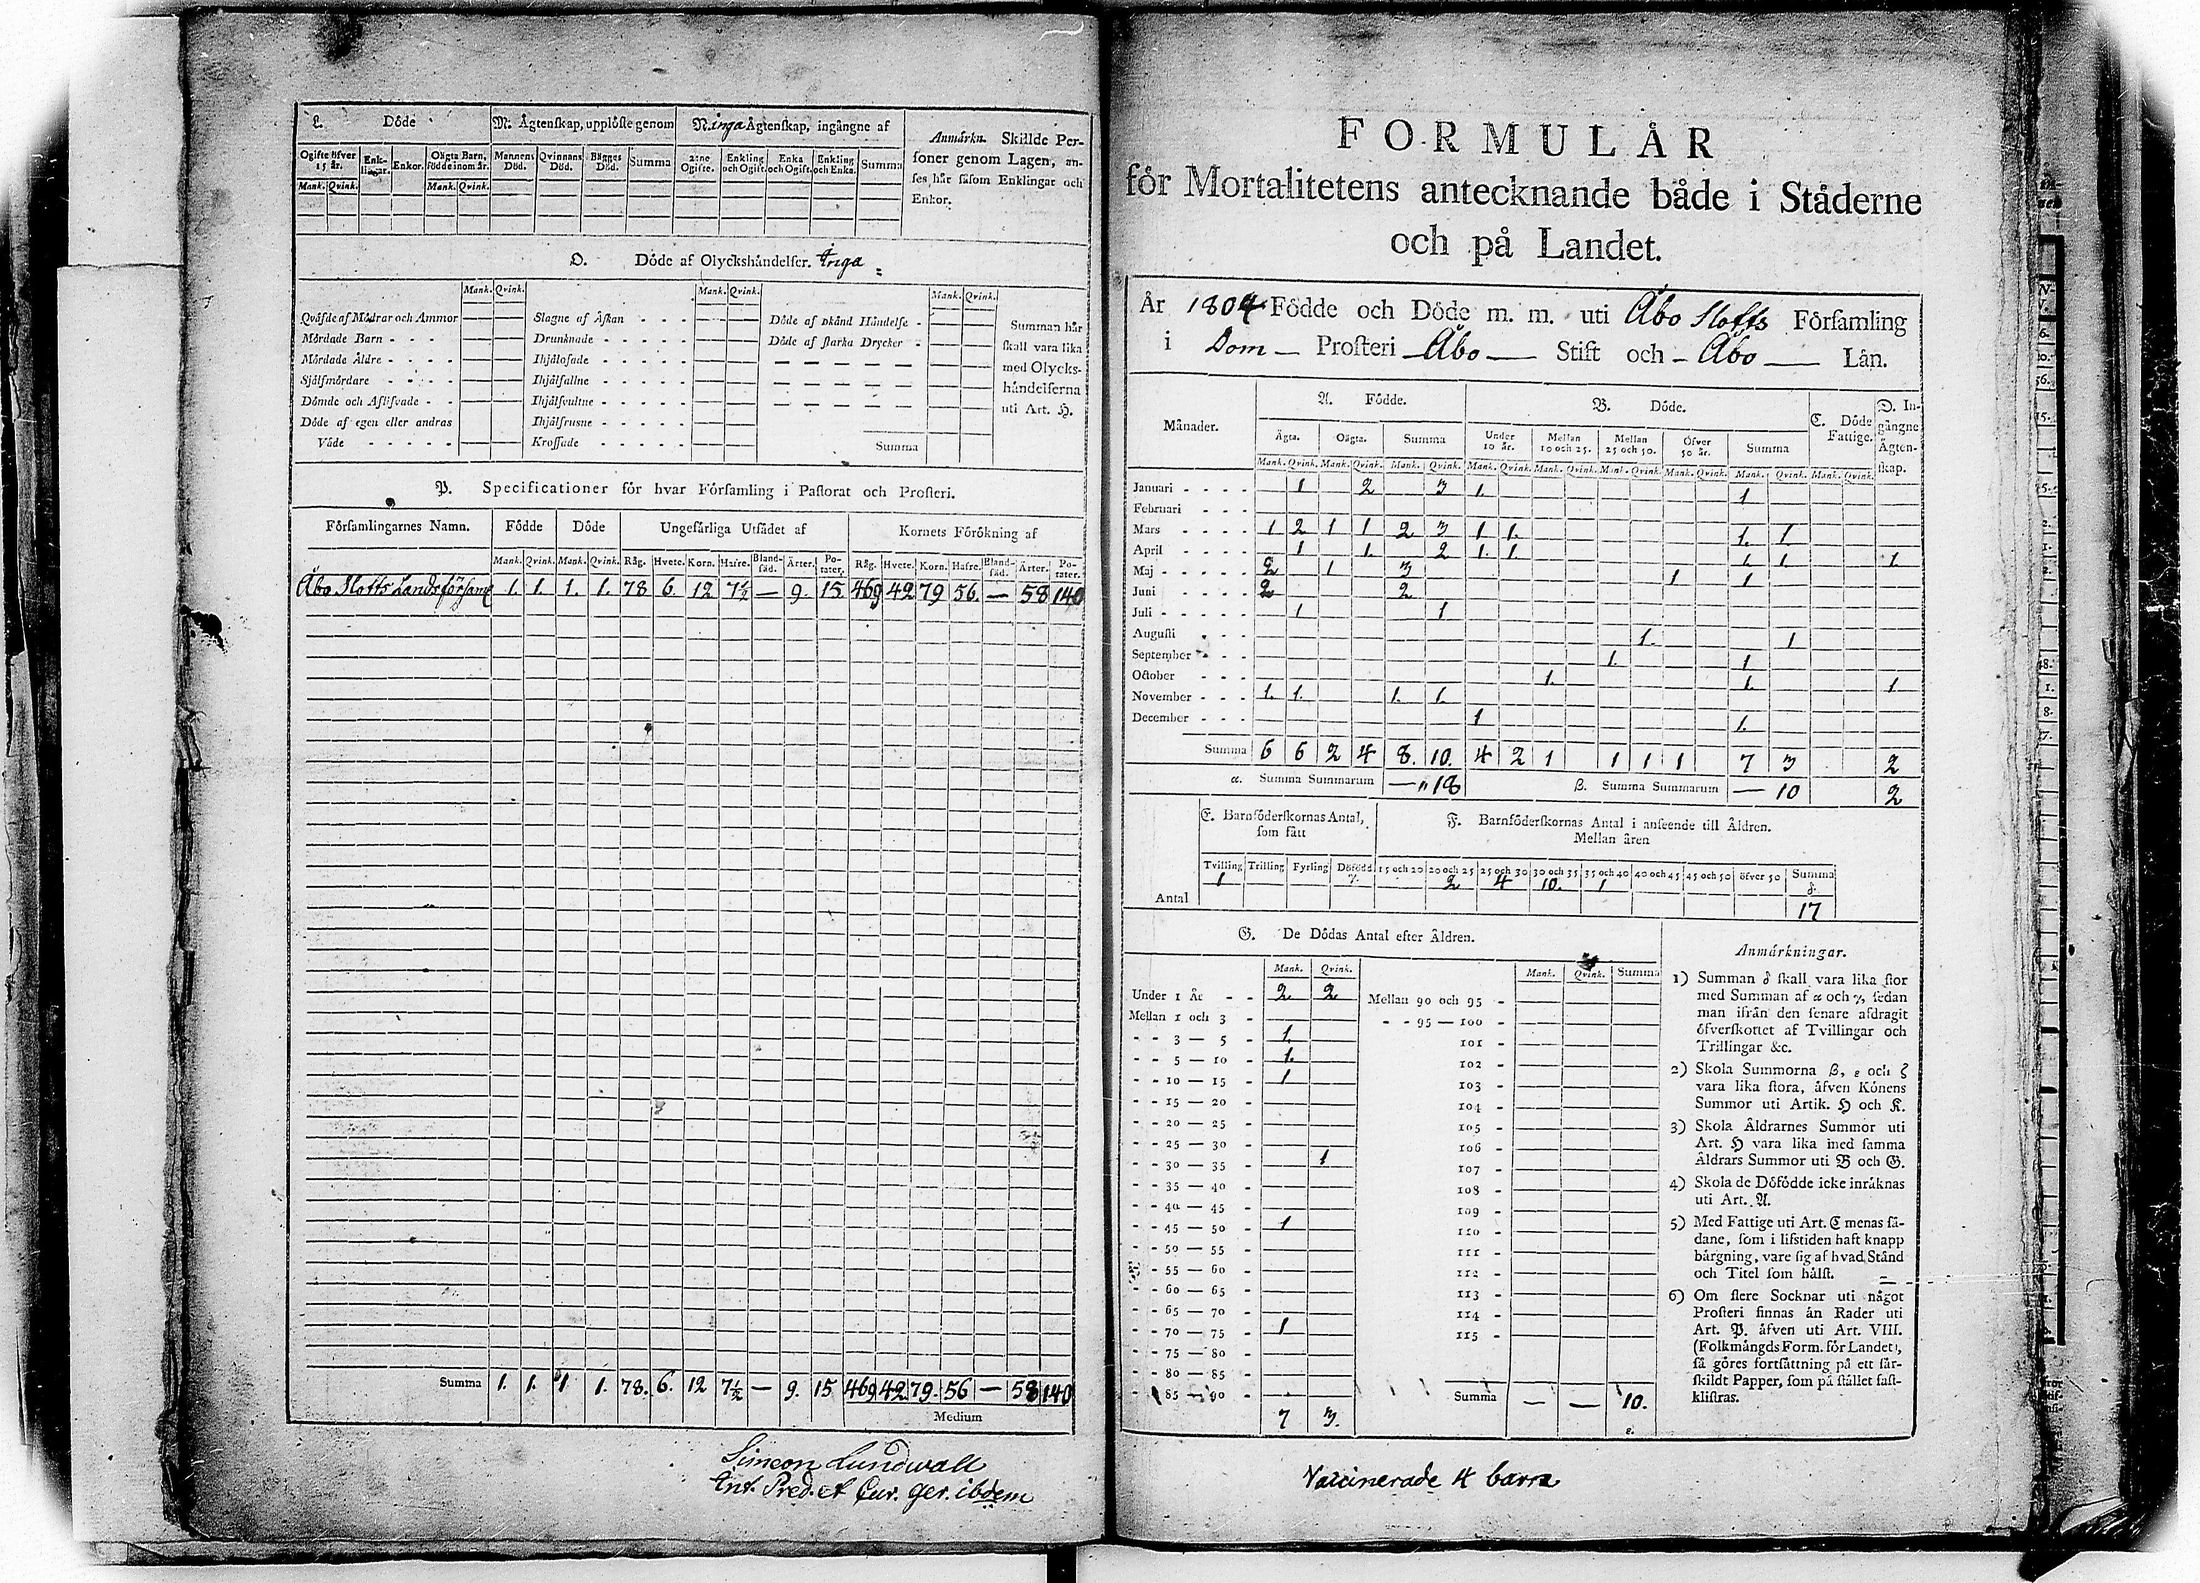 L. Döde
M. Ägtenskap, upplöste genom
N. inga Ägtenskap, ingångne af
Ogifte öfver 15 år. Enklingar. Enkor. Oägta Barn, födde inom år. Mannens Död. Qvinnans Död. Bägges Död. Summa 2:ne Ogifte. Enkling och Ogift. Enka och Ogift. Enkling och Enka. Summa
Mank. Qvink. Mank. Qvink.
Anmärkn. Skillde Per-
soner genom Lagen, an-
ses här såsom Enklingar och
Enkor.
O. Döde af Olyckshändelser. Inga
Mank. Qvink. Mank. Qvink. Mank. Qvink.
Qväfde af Mödrar och Ammor
Mördade Barn
Mördade Äldre
Sjelfmördare
Dömde och Aflifvade
Döde af egen eller andras
Våde
Slagne af Åskan
Drunknade
Ihjälosade
Ihjälfallne
Ihjälsvultne
Ihjälfrusne
Krossade
Döde af okänd Händelse
Döde af starka Drycker
Summa
Summan här
skall vara lika
med Olycks-
händelserna
uti Art. H.
P. Specificationer för hvar Församling i Pastorat och Prosteri.
Församlingarnes Namn. Födde Döde Ungefärliga Utsädet af Kornets Förökning af
Mank. Qvink. Mank. Qvink. Råg. Hvete. Korn. Hafre. Blandsäd. Ärter. Potater. Råg. Hvete. Korn. Hafre. Blandsäd. Ärter. Potater.
Åbo Slotts Landsförsaml 1. 1. 1. 1. 78 6. 12 7½ — 9. 15 469 42 79 56. — 58 140
Summa 1. 1. 1 1. 78. 6. 12 7½ — 9. 15 469 42 79. 56 — 58 140
Medium
Simeon Lundwall
Int. Pred. et Cur. ger. ibdem
FORMULÄR
för Mortalitetens antecknande både i Städerne
och på Landet.
År 1804 Födde och Döde m. m. uti Åbo Slotts Församling
i Dom — Prosteri Åbo — Stift och — Åbo — Län.
Månader. A. Födde. B. Döde. C. Döde Fattige. D. Ingångne Ägtenskap.
Ägta. Oägta. Summa Under 10 år. Mellan 10 och 25. Mellan 25 och 50. Öfver 50 år. Summa
Mank. Qvink. Mank. Qvink. Mank. Qvink. Mank. Qvink. Mank. Qvink. Mank. Qvink. Mank. Qvink. Mank. Qvink. Mank. Qvink.
Januari 1 2 3 1. 1
Februari
Mars 1 2 1 1 2 3 1 1. 1. 1
April 1 1. 2 1. 1. 1. 1 1
Maj 2 1 3 1 1
Juni 2 2
Juli 1 1
Augusti 1. 1
September 1. 1
October 1. 1. 1
November 1. 1. 1. 1.
December 1 1.
Summa 6 6 2 4 8. 10. 4 2 1 1 1 1 7 3 2
α. Summa Summarum — 18 β. Summa Summarum — 10 2
E. Barnföderskornas Antal, som fått
F. Barnföderskornas Antal i anseende till Åldren.
Mellan åren
Tvilling Trilling Fyrling Dödfödd 15 och 20 20 och 25 25 och 30 30 och 35 35 och 40 40 och 45 45 och 50 öfver 50 Summa
1 γ. 2 4 10. 1 δ.
Antal 17
G. De Dödas Antal efter Åldren.
Mank. Qvink. Mank. Qvink. Summa
Under 1 År 2 2 Mellan 90 och 95
Mellan 1 och 3 95 — 100
3 — 5 1. 101
5 — 10 1. 102
10 — 15 1 103
15 — 20 104
20 — 25 105
25 — 30 106
30 — 35 1 107
35 — 40 108
40 — 45 109
45 — 50 1 110
50 — 55 111
55 — 60 112
60 — 65 113
65 — 70 114
70 — 75 1 115
75 — 80
80 — 85
85 — 90 Summa — — 10.
7 3. ε.
Anmärkningar.
1) Summan δ skall vara lika stor
med Summan af α och γ, sedan
man ifrån den senare afdragit
öfverskottet af Tvillingar och
Trillingar &c.
2) Skola Summorna β, ε och ζ
vara lika stora, äfven Könens
Summor uti Artik. H och K.
3) Skola Åldrarnes Summor uti
Art. H vara lika med samma
Åldrars Summor uti B och G.
4) Skola de Döfödde icke inräknas
uti Art. A.
5) Med Fattige uti Art. C menas så-
dane, som i lifstiden haft knapp
bärgning, vare sig af hvad Stånd
och Titel som hälst.
6) Om flere Socknar uti något
Prosteri finnas än Rader uti
Art. P. äfven uti Art. VIII.
(Folkmängds Form. för Landet),
så göres fortsättning på ett sär-
skildt Papper, som på stället fast-
klistras.
Vaccinerade 4 barn